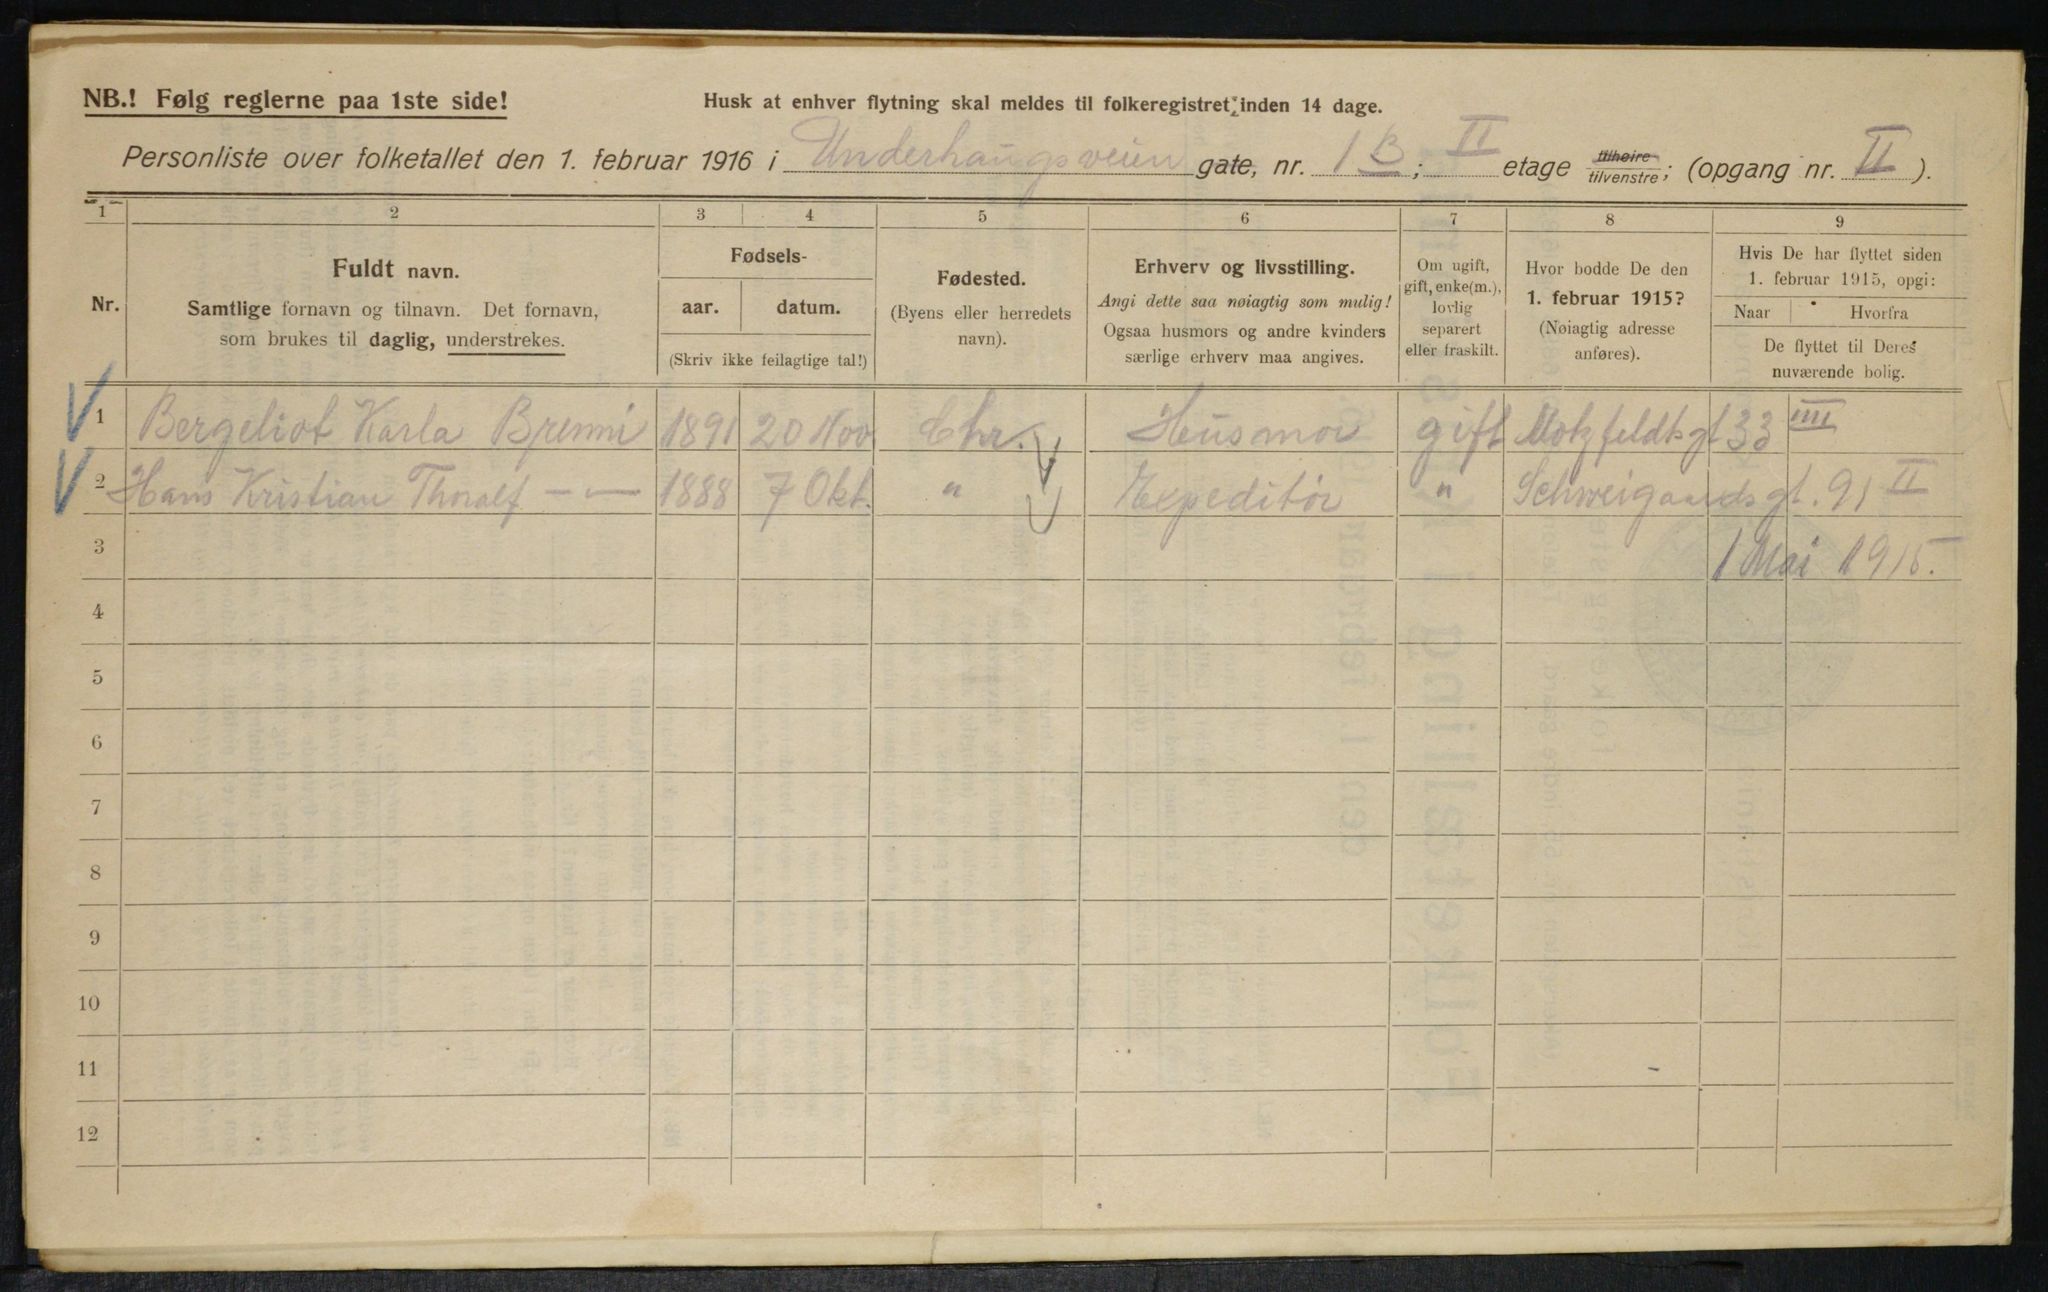 NB.! Følg reglerne paa 1ste side!
Husk at enhver flytning skal meldes til folkeregistret inden 14 dage.
Personliste over folketallet den 1. februar 1916 i Underhaugsveien gate, nr. 1 B ; II etage tilhøire tilvenstre ; (opgang nr. II ).
1 2 3 4 5 6 7 8 9
Nr.
Fuldt navn.
Samtlige fornavn og tilnavn. Det fornavn,
som brukes til daglig, understrekes.
Fødsels-
aar. datum.
(Skriv ikke feilagtige tal!)
Fødested.
(Byens eller herredets
navn).
Erhverv og livsstilling.
Angi dette saa nøiagtig som mulig!
Ogsaa husmors og andre kvinders
særlige erhverv maa angives.
Om ugift,
gift, enke(m.),
lovlig
separert
eller fraskilt.
Hvor bodde De den
1. februar 1915?
(Nøiagtig adresse
anføres).
Hvis De har flyttet siden
1. februar 1915, opgi:
Naar Hvorfra
De flyttet til Deres
nuværende bolig.
1 Bergeliot Karla 1891 20 Nov Chr. Husmor gift Motzfeldtsgt 33 IIII
2 Hans Kristian Thoralf — — 1888 7 Okt. " Expeditør " Schweigaardsgt. 91 II
3 1 Mai 1915.
4
5
6
7
8
9
10
11
12